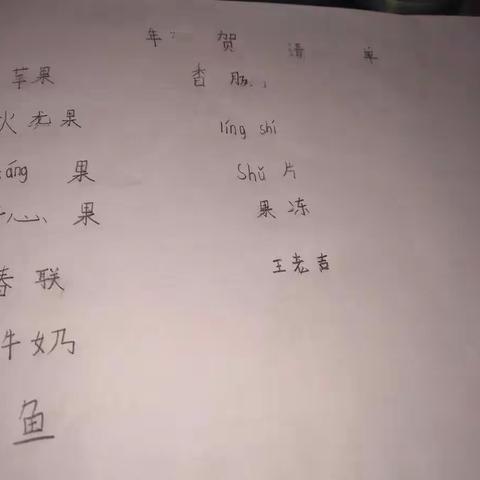 年 贺 清 单
苹果
香肠
火龙果
líng shí
áng 果
Shǔ 片
心 果
果冻
春联
王老吉
牛奶
鱼